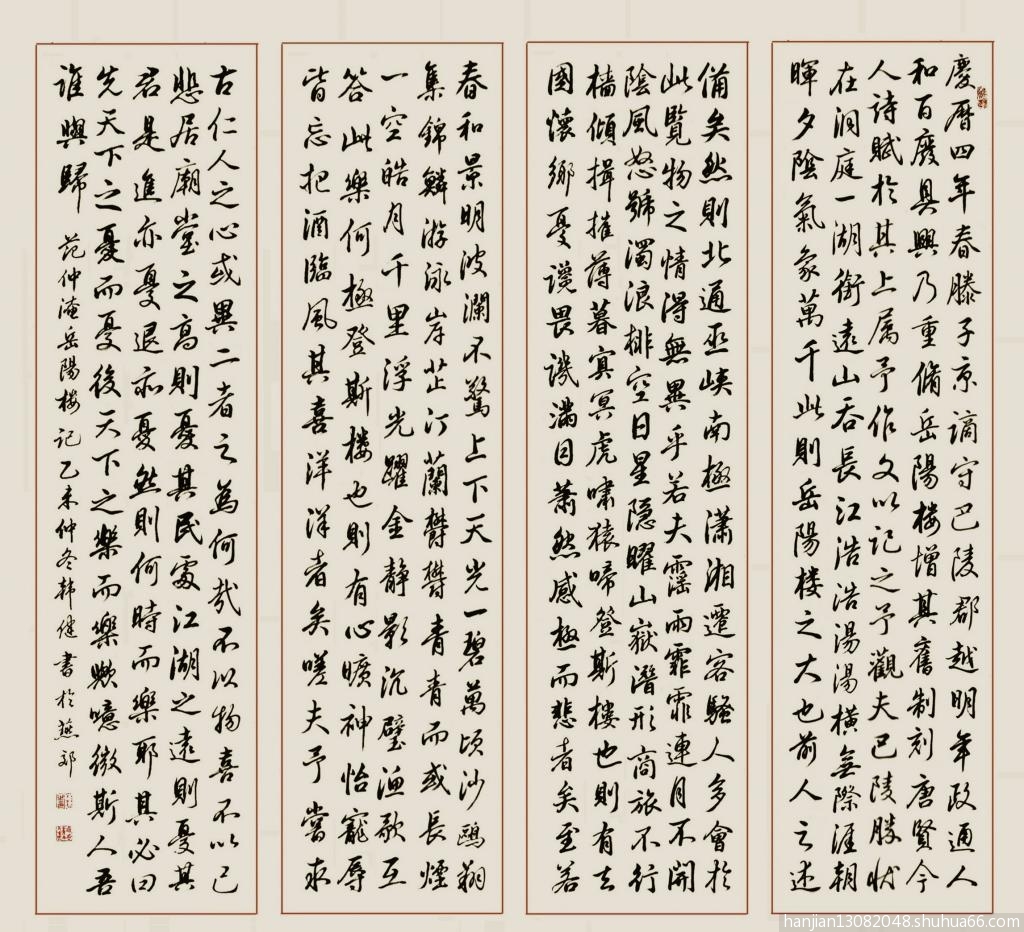 慶曆四年春滕子京謫守巴陵郡越明年政通人
和百廢具興乃重脩岳陽楼增其舊制刻唐賢今
人詩賦於其上属予作文以記之予觀夫巴陵勝狀
在洞庭一湖銜遠山吞長江浩浩湯湯橫無際涯朝
暉夕陰氣象萬千此則岳陽楼之大也前人之述
備矣然則北通巫峽南極瀟湘遷客騷人多會於
此覽物之情得無異乎若夫霪雨霏霏連月不開
陰風怒號濁浪排空日星隐曜山嶽潛形商旅不行
檣傾揖摧薄暮冥冥虎嘯猿啼登斯樓也則有去
國懷鄉憂讒畏譏滿目蕭然感極而悲者矣至若
春和景明波瀾不驚上下天光一碧萬頃沙鷗翔
集錦鱗游泳岸芷汀蘭鬱鬱青青而或長煙
一空皓月千里浮光躍金静影沉璧漁歌互
答此樂何極登斯楼也則有心曠神怡寵辱
皆忘把酒臨風其喜洋洋者矣嗟夫予嘗求
古仁人之心或異二者之為何哉不以物喜不以己
悲居廟堂之高則憂其民處江湖之遠則憂其
君是進亦憂退亦憂然則何時而樂耶其必曰
先天下之憂而憂後天下之樂而樂歟噫微斯人吾
誰與歸 范仲淹岳陽楼記乙未仲冬韩健書於燕郊
hanjian13082048.shuhua66.com